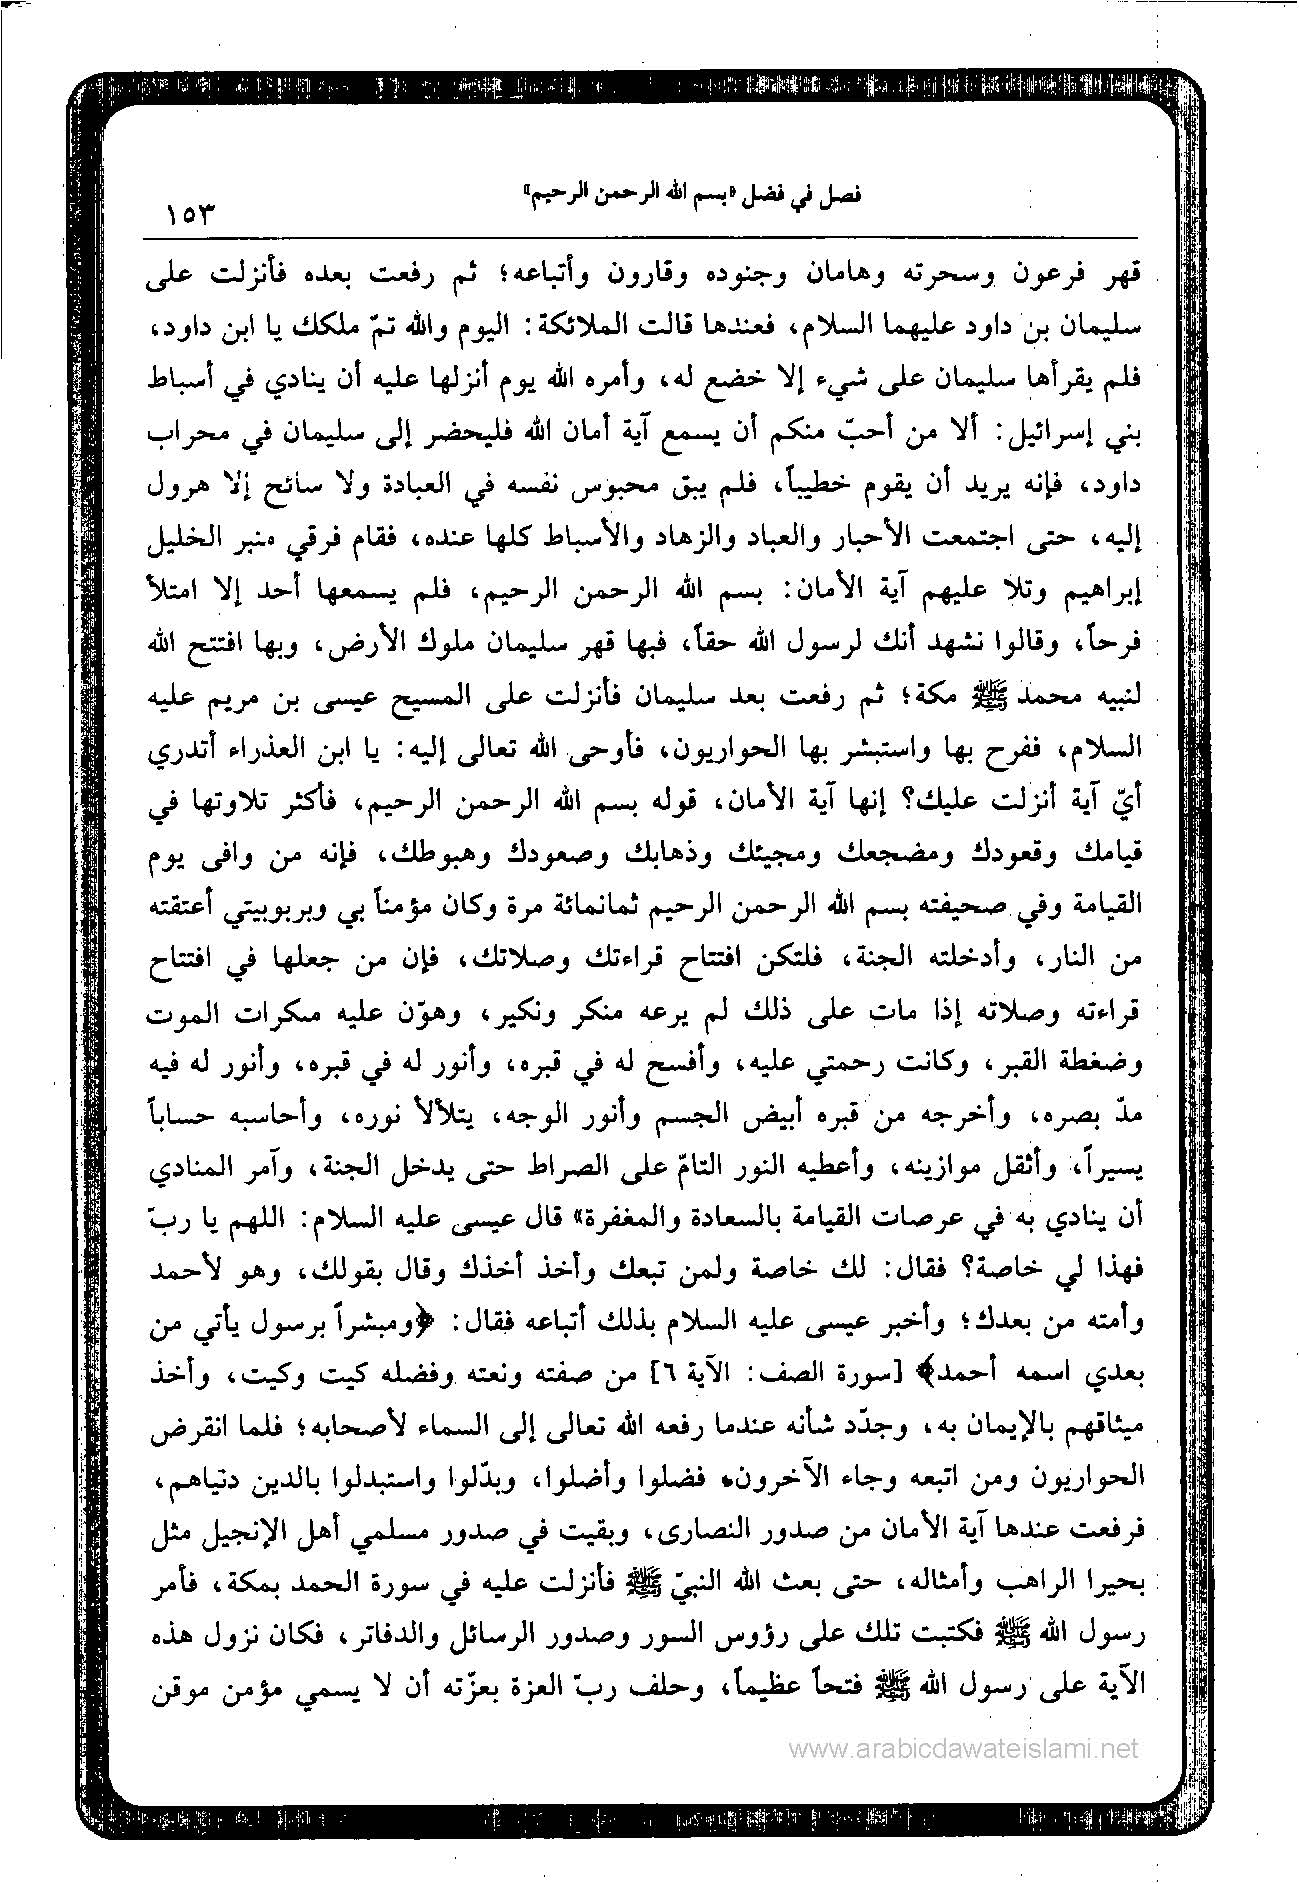 فصل في فضل «بسم الله الرحمن الرحيم»
١٥٣
قهر فرعون وسحرته وهامان وجنوده وقارون وأتباعه؛ ثم رفعت بعده فأنزلت على
سليمان بن داود عليهما السلام، فعندها قالت الملائكة: اليوم والله تمّ ملكك يا ابن داود،
فلم يقرأها سليمان على شيء إلا خضع له، وأمره الله يوم أنزلها عليه أن ينادي في أسباط
بني إسرائيل: ألا من أحبّ منكم أن يسمع آية أمان الله فليحضر إلى سليمان في محراب
داود، فإنه يريد أن يقوم خطيباً، فلم يبق محبوس نفسه في العبادة ولا سائح إلا هرول
إليه، حتى اجتمعت الأحبار والعباد والزهاد والأسباط كلها عنده، فقام فرقي منبر الخليل
إبراهيم وتلا عليهم آية الأمان: بسم الله الرحمن الرحيم، فلم يسمعها أحد إلا امتلأ
فرحاً، وقالوا نشهد أنك لرسول الله حقاً، فبها قهر سليمان ملوك الأرض، وبها افتتح الله
لنبيه محمد ﷺ مكة؛ ثم رفعت بعد سليمان فأنزلت على المسيح عيسى بن مريم عليه
السلام، ففرح بها واستبشر بها الحواريون، فأوحى الله تعالى إليه: يا ابن العذراء أتدري
أيّ آية أنزلت عليك؟ إنها آية الأمان، قوله بسم الله الرحمن الرحيم، فأكثر تلاوتها في
قيامك وقعودك ومضجعك ومجيئك وذهابك وصعودك وهبوطك، فإنه من وافى يوم
القيامة وفي صحيفته بسم الله الرحمن الرحيم ثمانمائة مرة وكان مؤمناً بي وبربوبيتي أعتقته
من النار، وأدخلته الجنة، فلتكن افتتاح قراءتك وصلاتك، فإن من جعلها في افتتاح
قراءته وصلاته إذا مات على ذلك لم يرعه منكر ونكير، وهوّن عليه سكرات الموت
وضغطة القبر، وكانت رحمتي عليه، وأفسح له في قبره، وأنور له في قبره، وأنور له فيه
مدّ بصره، وأخرجه من قبره أبيض الجسم وأنور الوجه، يتلألأ نوره، وأحاسبه حساباً
يسيراً، وأثقل موازينه، وأعطيه النور التامّ على الصراط حتى يدخل الجنة، وآمر المنادي
أن ينادي به في عرصات القيامة بالسعادة والمغفرة» قال عيسى عليه السلام: اللهم يا ربّ
فهذا لي خاصة؟ فقال: لك خاصة ولمن تبعك وأخذ أخذك وقال بقولك، وهو لأحمد
وأمته من بعدك؛ وأخبر عيسى عليه السلام بذلك أتباعه فقال: ﴿ومبشراً برسول يأتي من
بعدي اسمه أحمد﴾ [سورة الصف: الآية ٦] من صفته ونعته وفضله كيت وكيت، وأخذ
ميثاقهم بالإيمان به، وجدّد شأنه عندما رفعه الله تعالى إلى السماء لأصحابه؛ فلما انقرض
الحواريون ومن اتبعه وجاء الآخرون، فضلوا وأضلوا، وبدّلوا واستبدلوا بالدين دنياهم،
فرفعت عندها آية الأمان من صدور النصارى، وبقيت في صدور مسلمي أهل الإنجيل مثل
بحيرا الراهب وأمثاله، حتى بعث الله النبيّ ﷺ فأنزلت عليه في سورة الحمد بمكة، فأمر
رسول الله ﷺ فكتبت تلك على رؤوس السور وصدور الرسائل والدفاتر، فكان نزول هذه
الآية على رسول الله ﷺ فتحاً عظيماً، وحلف ربّ العزة بعزّته أن لا يسمي مؤمن موقن
www.arabicdawateislami.net